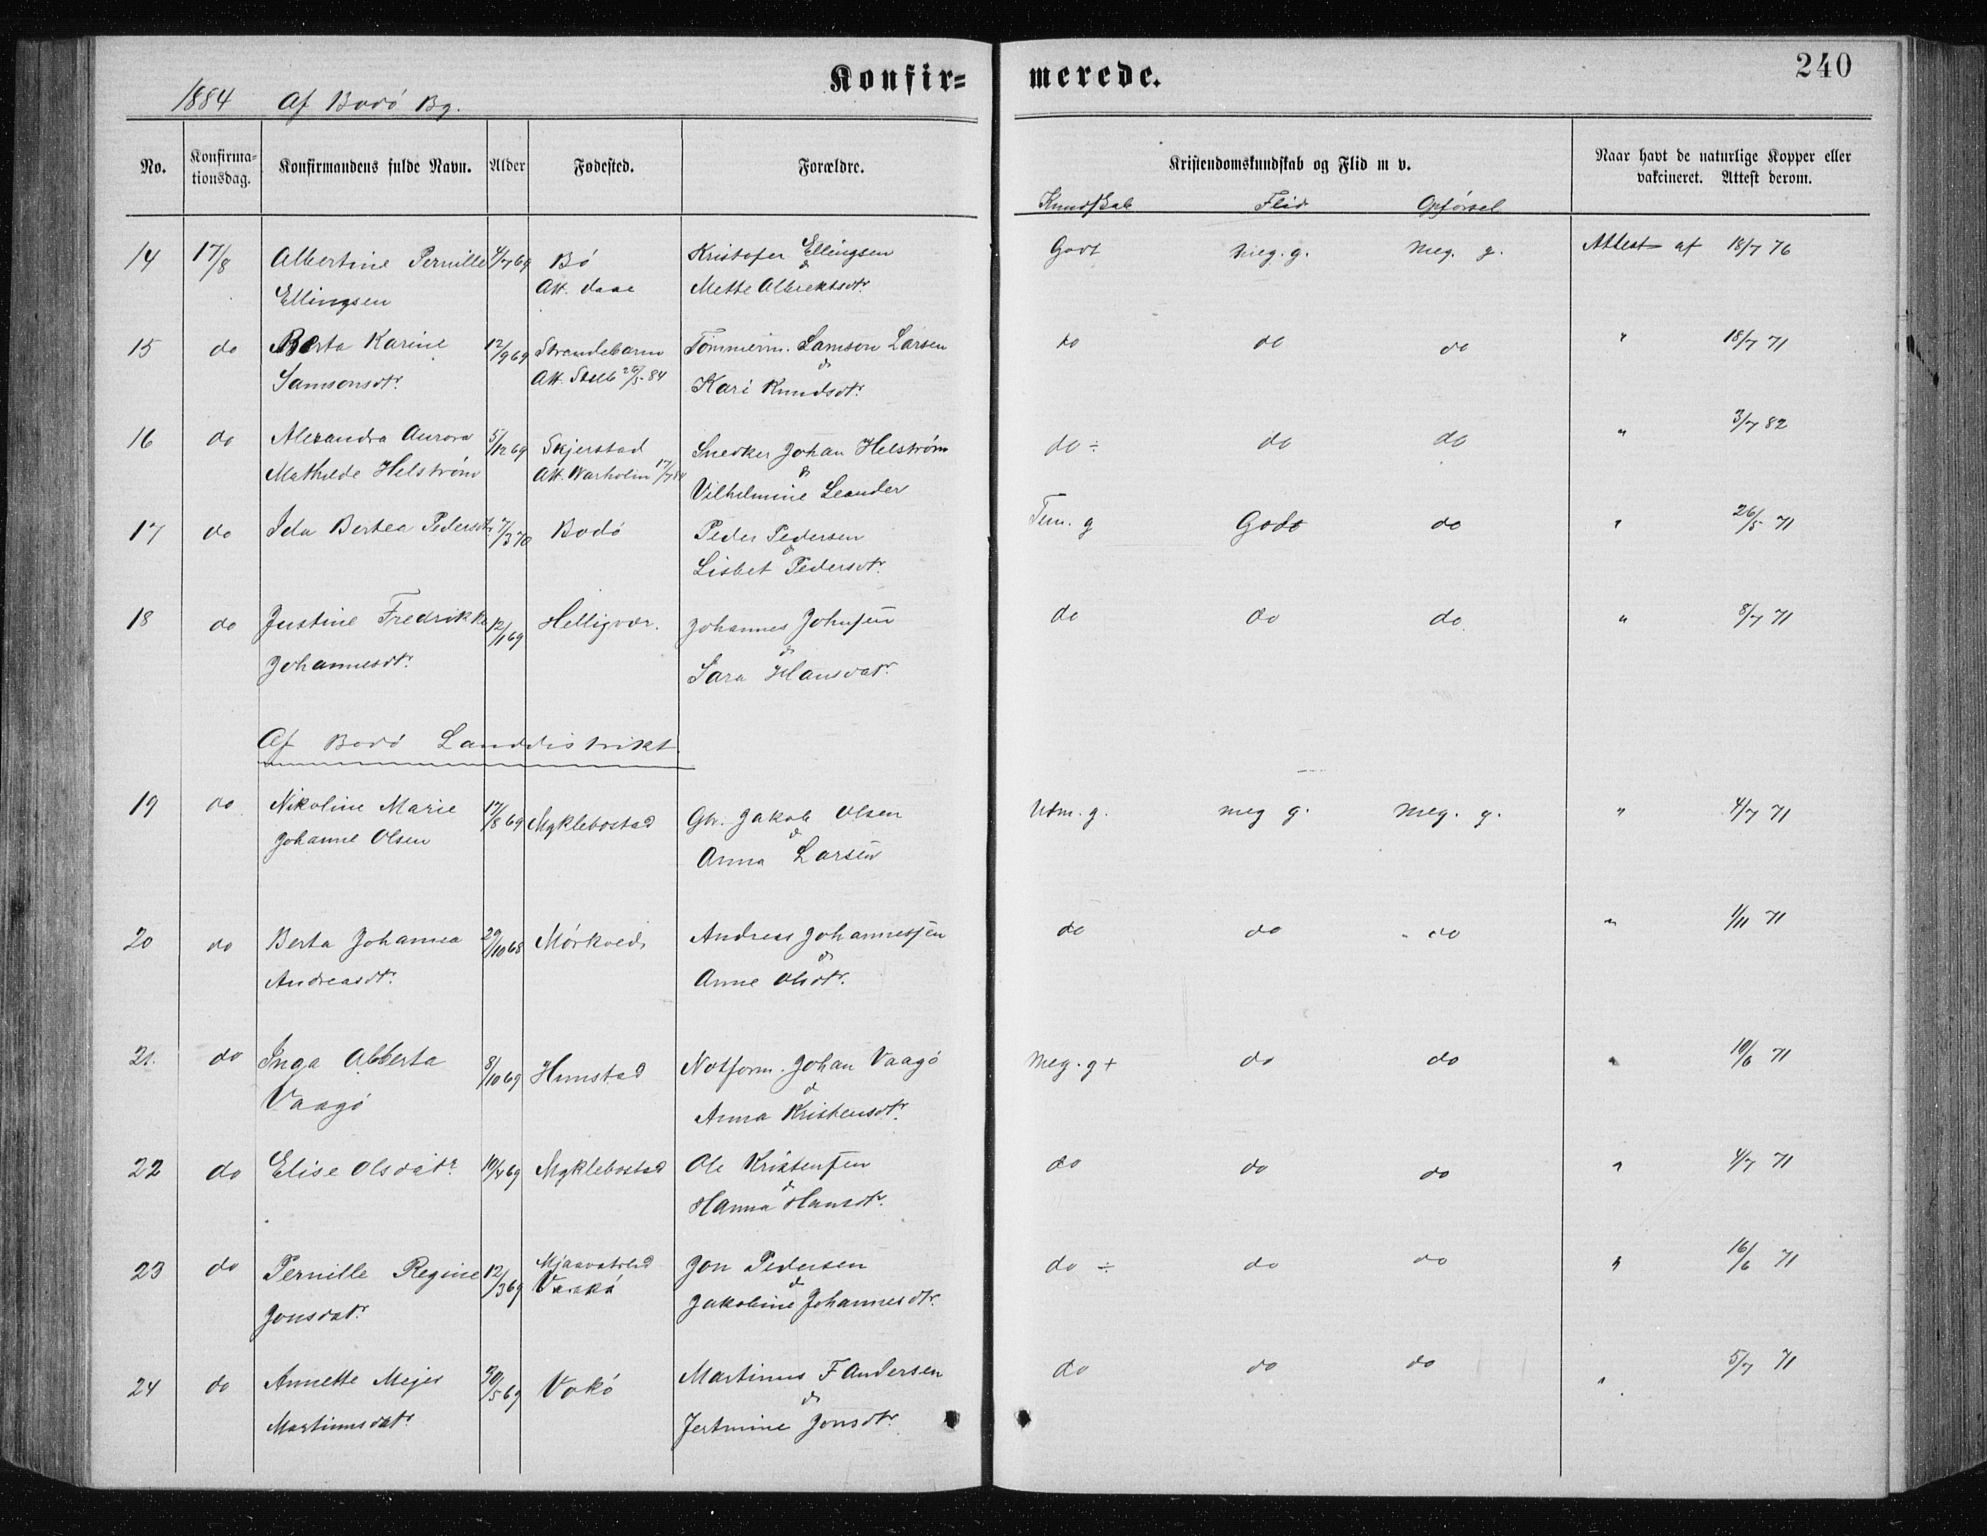 Konfir=
merede.
240
1884 Af Bodö By.
No.
Konfirma-
tionsdag.
Konfirmandens fulde Navn.
Alder
Fødested.
Forældre.
Kristendomskundskab og Flid m v.
Naar havt de naturlige Kopper eller
vakcineret. Attest derom.
Kundskab Flid Opførsel
14 17/8 Albertine Pernille 4/7 69 Bö Kristofer Ellingsen Godt meg. g. meg. g. Attest af 18/7 76
Ellingsen Att. Daae & Mette Albrektsdtr.
15 do Berta Karine 12/9 69 Strandebarm Tömmerm. Samson Larsen do do do " 18/7 71
Samsonsdtr. Att. 26/5 84 & Kari Knudsdtr.
16 do Alexandra Aurora 5/12 69 Skjerstad Snedker Johan Helström do ÷ do do " 3/7 82
Mathilde Helström Att. Warholm 17/7 84 & Vilhelmine Leander
17 do Ida Bertea Pedersdtr 7/3 70 Bodö Peder Pedersen Tem. g Godt do " 26/5 71
& Lisbet Pedersdtr.
18 do Justine Fredrikke 12/1 69 Helligvær. Johannes Johnsen do do do " 8/7 71
Johannesdtr. & Sara Hansdatr.
Af Bodö Landdistrikt
19 do Nikoline Marie 17/8 69 Myklebostad Gbr. Jakob Olsen Udm. g. meg g. Meg. g. " 4/7 71
Johanne Olsen & Anna Larsen
20 do Berta Johanna 29/10 68 Mörkved Andreas Johannessen do do do " 1/11 71
Andreasdtr. & Anne Olsdtr.
21. do Inga Alberta 8/10 69 Hunstad Notform. Johan Vaagö Meg. g + do do " 10/6 71
Vaagö & Anna Kristensdtr.
22 do Elise Olsdatr 10/4 69 Myklebostad Ole Kristensen do do do " 4/7 71
& Hanna Hansdtr.
23 do Pernille Regine 12/3 69 Jon Pedersen do ÷ do do " 16/6 71
Jonsdatr. & Jakobine Johannesdtr.
24 do Annette Mejer 30/5 69 Vokö Martinus F Andersen do do do " 5/7 71
Martinusdatr. & Jertmine Jonsdtr.